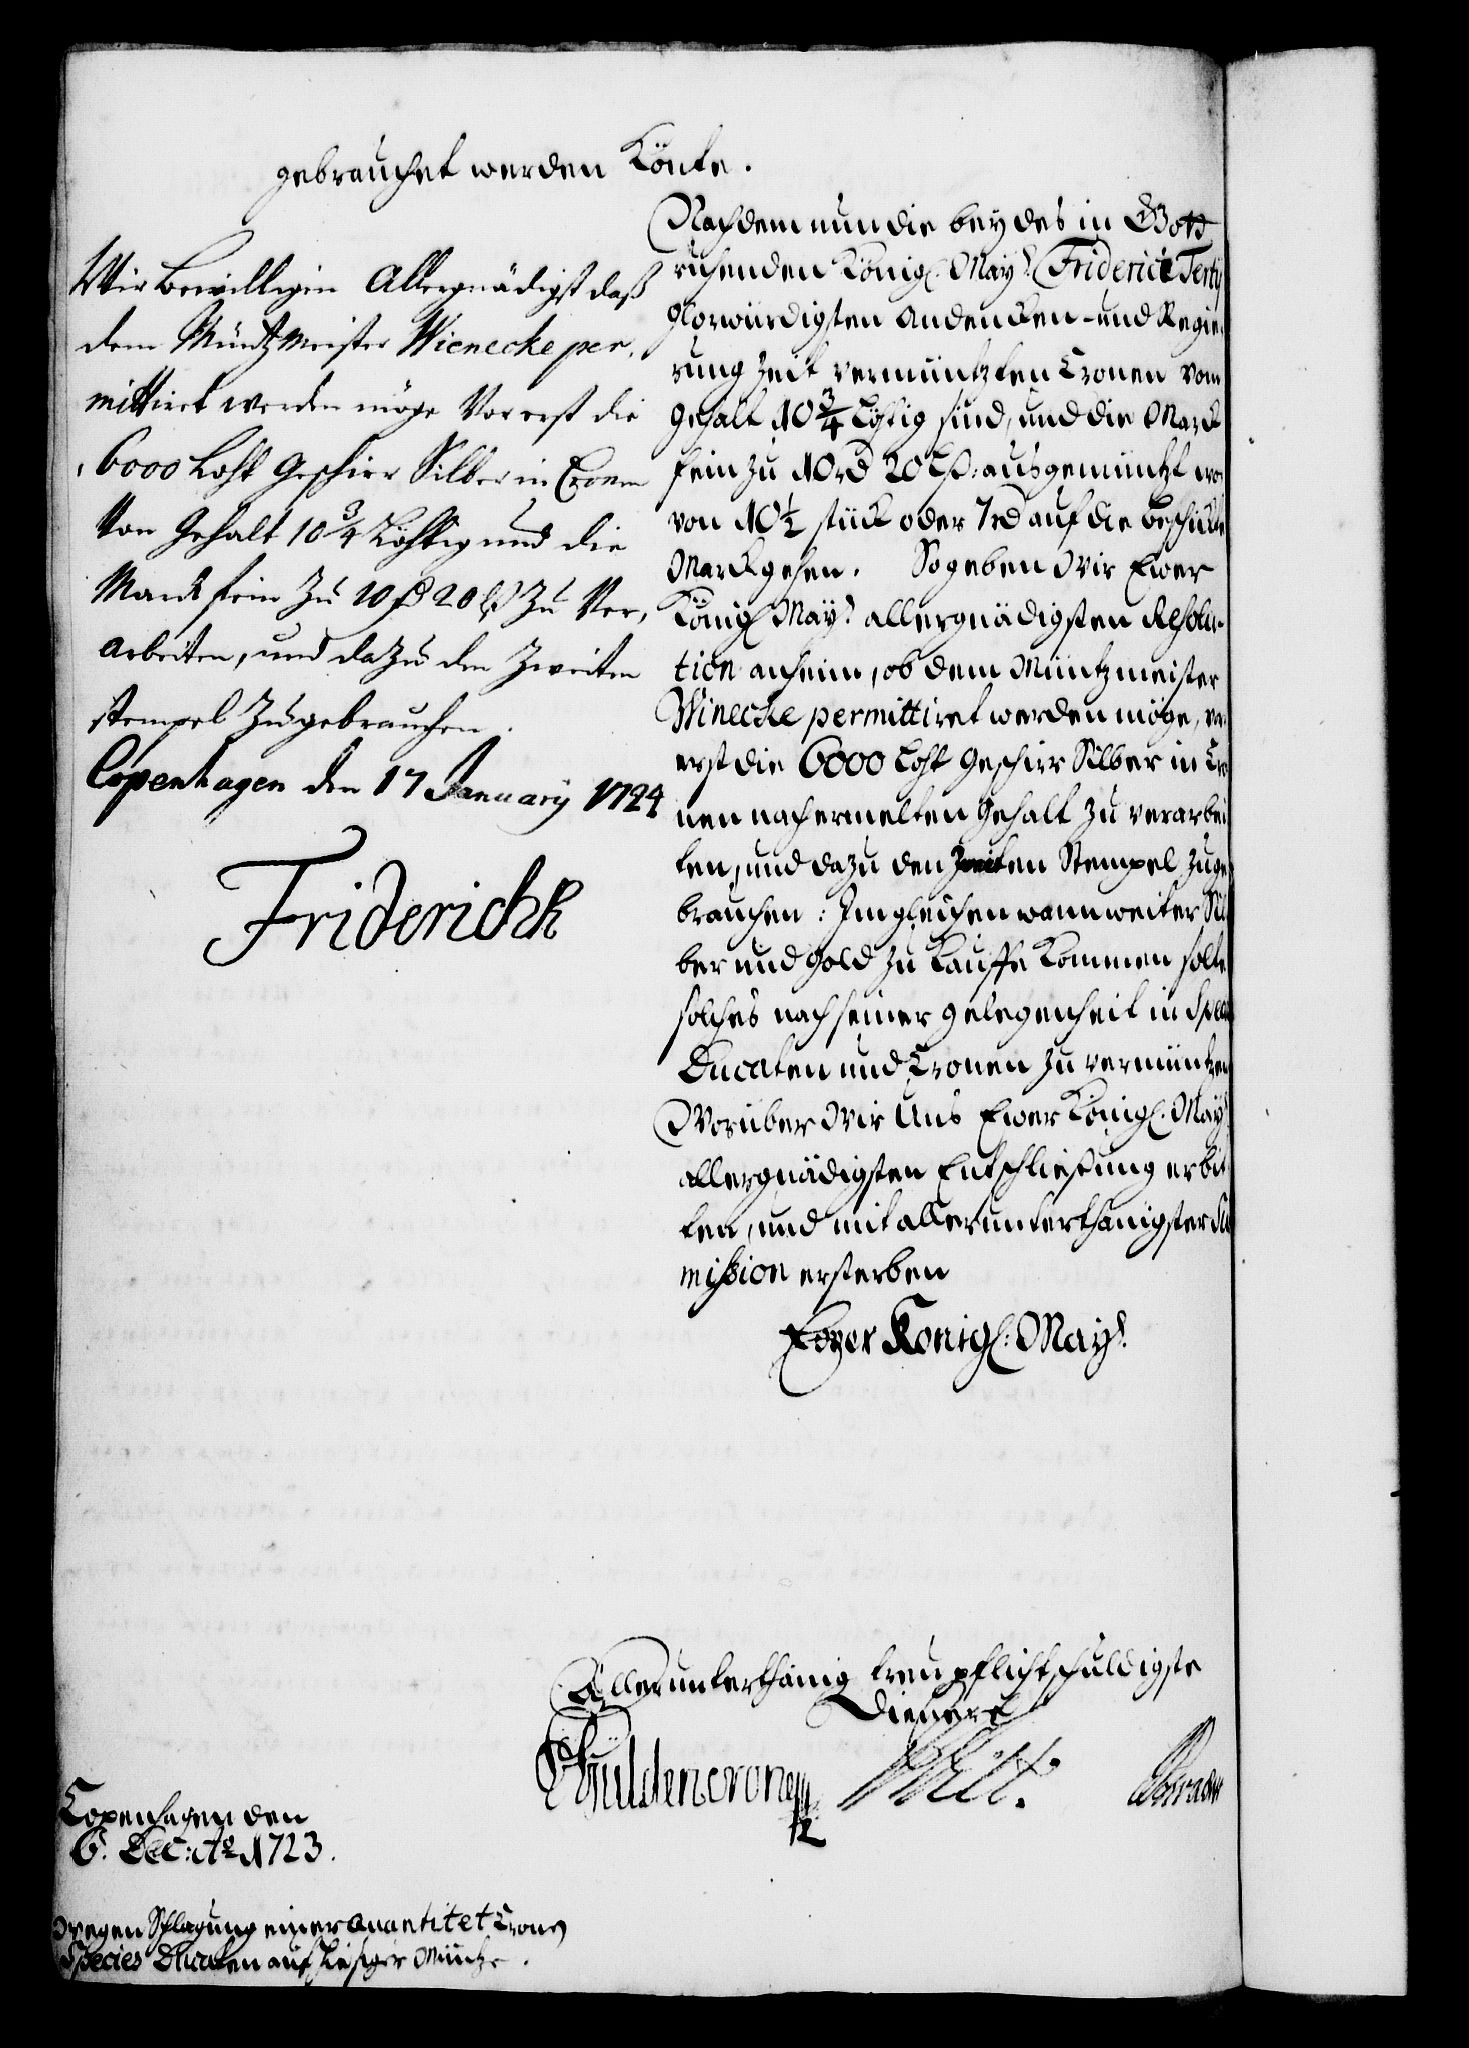 gebrauchet werden Könte.
Wir bewilligen Allergnädigst daß
dem Müntz Meister Wienecke per,
mittiret werden möge Vor erst die
6000 Loht Geschirr Silber in Cronen
Von Gehalt 10 3/4 Löhtig und die
Marck fein Zu 10 20 ß Zu Ver,
arbeiten, und dazu den Zweiten
stempel Zugebrauchen.
Copenhagen den 17 January 1724
Friderich R
Nachdem nun die bey des in Gott
ruhenden Königl May.t Friderici Terty
Glorwürdigsten Andencken - und Regie-
rung Zeit vermüntzten Cronen vom
Gehalt 10 3/4 Löhtig sind, und die Marck
fein zu 10 rd 20 lß: ausgemüntzt
von 10 1/2 stück oder 7 rd auf die beschickte
Marck gehen. So geben Wir Ewer
Königl May.t allergnädigsten Resolu-
tion anheim, ob dem Müntzmeister
Winecke permittiret werden möge, vor
erst die 6000 Loht Geschirr Silber in Cro
nen nach ermelten Gehalt zu verarbei
ten, und dazu den Zweiten Stempel zuge
brauchen: Imgleichen wann weiter Sil
ber und Gold zu Kauffe Kommen solte
solches nach seiner gelegenheit in Spec
Ducaten und Cronen zu vermüntzen
Worüber Wir Uns Ewer Königl. May.t
allergnädigsten Entschließung erbit
ten, und mit allerunterthänigster Su
mission ersterben
Ewer Königl: May.t
Allerunterthänig treupflichtschuldigste
Diener
Güldencrone
Copenhagen den
6. Dec: Ao 1723.
Wegen Schlagung einer Quantitet Cronen
Species Ducaten auf hiesiger Müntze.